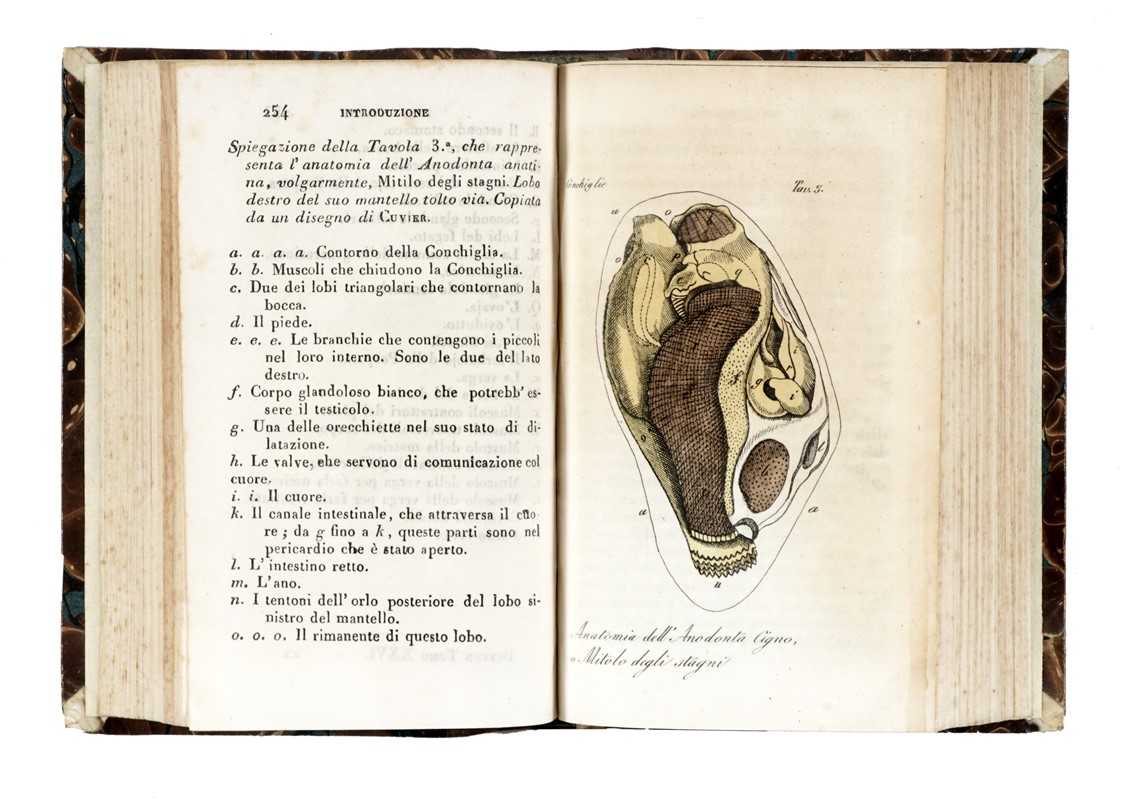 254 INTRODUZIONE
Spiegazione della Tavola 3.ª, che rappre-
senta l'anatomia dell'Anodonta anati-
na, volgarmente, Mitilo degli stagni. Lobo
destro del suo mantello tolto via. Copiata
da un disegno di CUVIER.
a. a. a. a. Contorno della Conchiglia.
b. b. Muscoli che chiudono la Conchiglia.
c. Due dei lobi triangolari che contornano la
bocca.
d. Il piede.
e. e. e. Le branchie che contengono i piccoli
nel loro interno. Sono le due del lato
destro.
f. Corpo glandoloso bianco, che potrebb'es-
sere il testicolo.
g. Una delle orecchiette nel suo stato di di-
latazione.
h. Le valve, che servono di comunicazione col
cuore.
i. i. Il cuore.
k. Il canale intestinale, che attraversa il cuo-
re; da g fino a k, queste parti sono nel
pericardio che è stato aperto.
l. L'intestino retto.
m. L'ano.
n. I tentoni dell'orlo posteriore del lobo si-
nistro del mantello.
o. o. o. Il rimanente di questo lobo.
Conchiglie Tav. 3.
a o
a a
n
Anatomia dell'Anodonta Cigno,
o Mitolo degli stagni